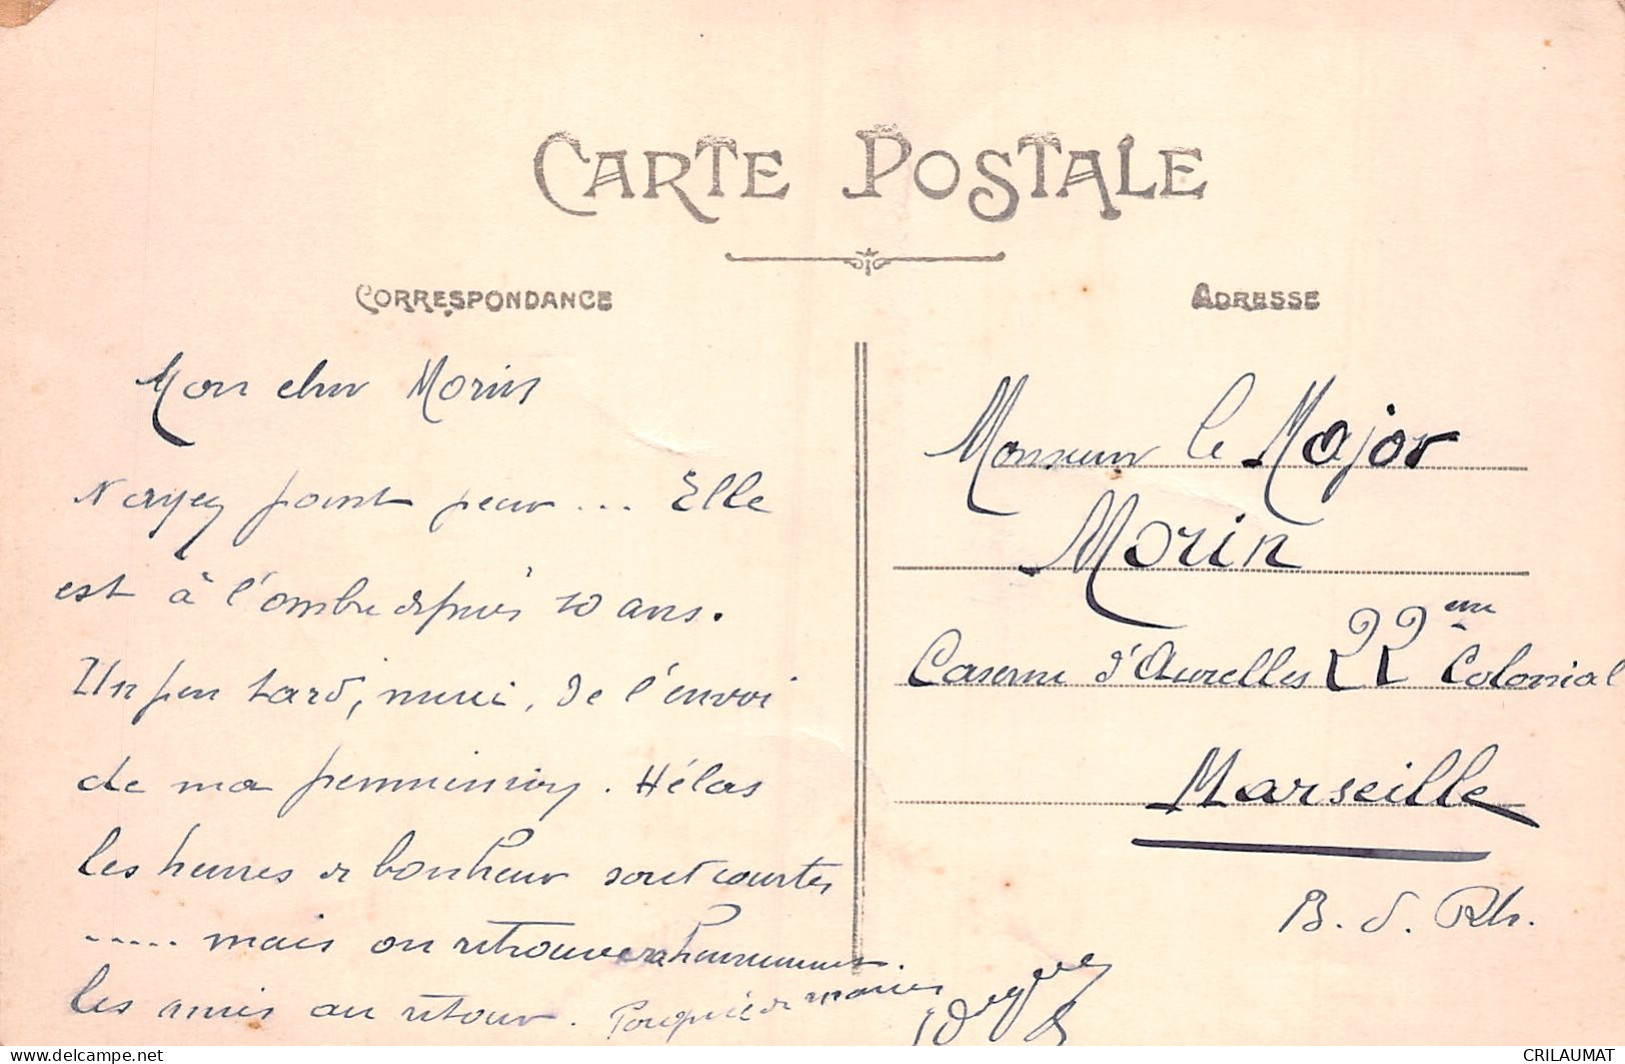 CARTE POSTALE
CORRESPONDANCE
ADRESSE
Mon cher Morin
N'ayez point peur ... Elle
est à l'ombre depuis 10 ans.
Un peu tard, merci, de l'envoi
de ma permission. Hélas
les heures de bonheur sont courtes
..... mais on retrouvera heureusement
les amis au retour. Poignée de mains
Monsieur le Major
Morin
Caserne d'Aurelles 22eme Colonial
Marseille
B. d. Rh.
CRILAUMAT